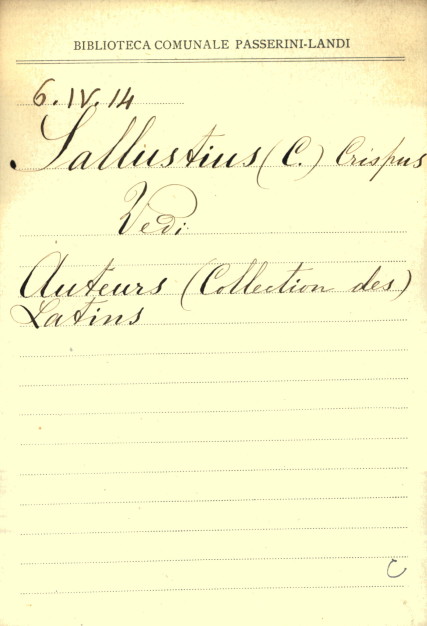 BIBLIOTECA COMUNALE PASSERINI-LANDI
6.IV.14
Sallustius (C.) Crispus
Vedi
Auteurs (Collection des)
Latins
C